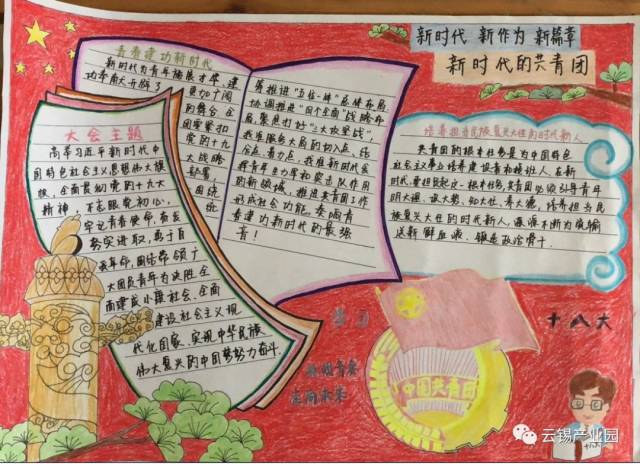 新时代 新作为 新篇章
新时代的共青团
青春建功新时代
新时代为青年施展才华、建
功奉献开辟了
更加广阔
的舞台 全
团要紧扣
党的十九
大战略
部署,
围绕
统
筹推进“五位一体”总体布局
协调推进“四个全面”战略布
局,聚焦打好“三大攻坚战”,
我准新时代
青春建功新时代的最强
音!
大会主题
高举习近平新时代中
国特色社会主义思想伟大旗
帜,全面贯彻党的十九大
精神
不忘跟党初心,
牢记青春使命,
务实进取,勇于自
我革命,团结带领广
大团员青年为决胜全
面建成小康社会、全面
建设社会主义现
代化国家、实现中华民族
伟大复兴的中国梦努力奋斗.
培养担当民族复兴大任的时代新人
共青团的根本任务是为中国特色
社会主义事业培养建设者和接班人.在新
时代,要担负起这一根本任务,共青团必须引导青年
明大德、成大势、知大任、
族复兴大任的时代新人,源源不断为党输
送新鲜血液、锻造政治骨干.
十八大
中国共青团
放飞青春
走向未来
云锡产业园